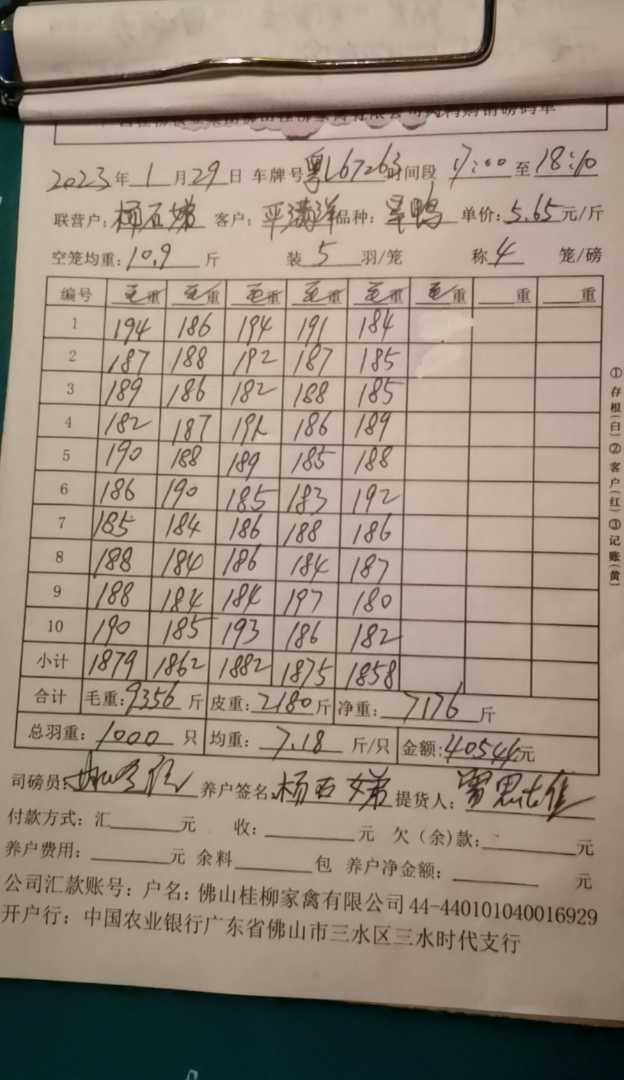 2023年1月29日 车牌号粤L67263时间段 17:00至18:10
联营户:杨石娣 客户:平满洋品种: 鸭 单价:5.65元/斤
空笼均重:10.9斤 装5羽/笼 称4笼/磅
编号 毛重 毛重 毛重 毛重 毛重 毛重 重 重
1 194 186 194 191 184
2 187 188 192 187 185
3 189 186 182 188 185
4 182 187 191 186 189
5 190 188 189 185 188
6 186 190 185 183 192
7 185 184 186 188 186
8 188 184 186 184 187
9 188 184 184 197 180
10 190 185 193 186 182
小计 1879 1862 1882 1875 1858
合计 毛重:9356斤 皮重:2180斤 净重:7176斤
总羽重:1000只 均重:7.18斤/只 金额:40544元
司磅员: 养户签名:杨石娣 提货人:
付款方式:汇 元 收: 元 欠(余)款: 元
养户费用: 元 余料 包 养户净金额: 元
公司汇款账号:户名:佛山桂柳家禽有限公司44-440101040016929
开户行:中国农业银行广东省佛山市三水区三水时代支行
①存根(白)②客户(红)③记账(黄)